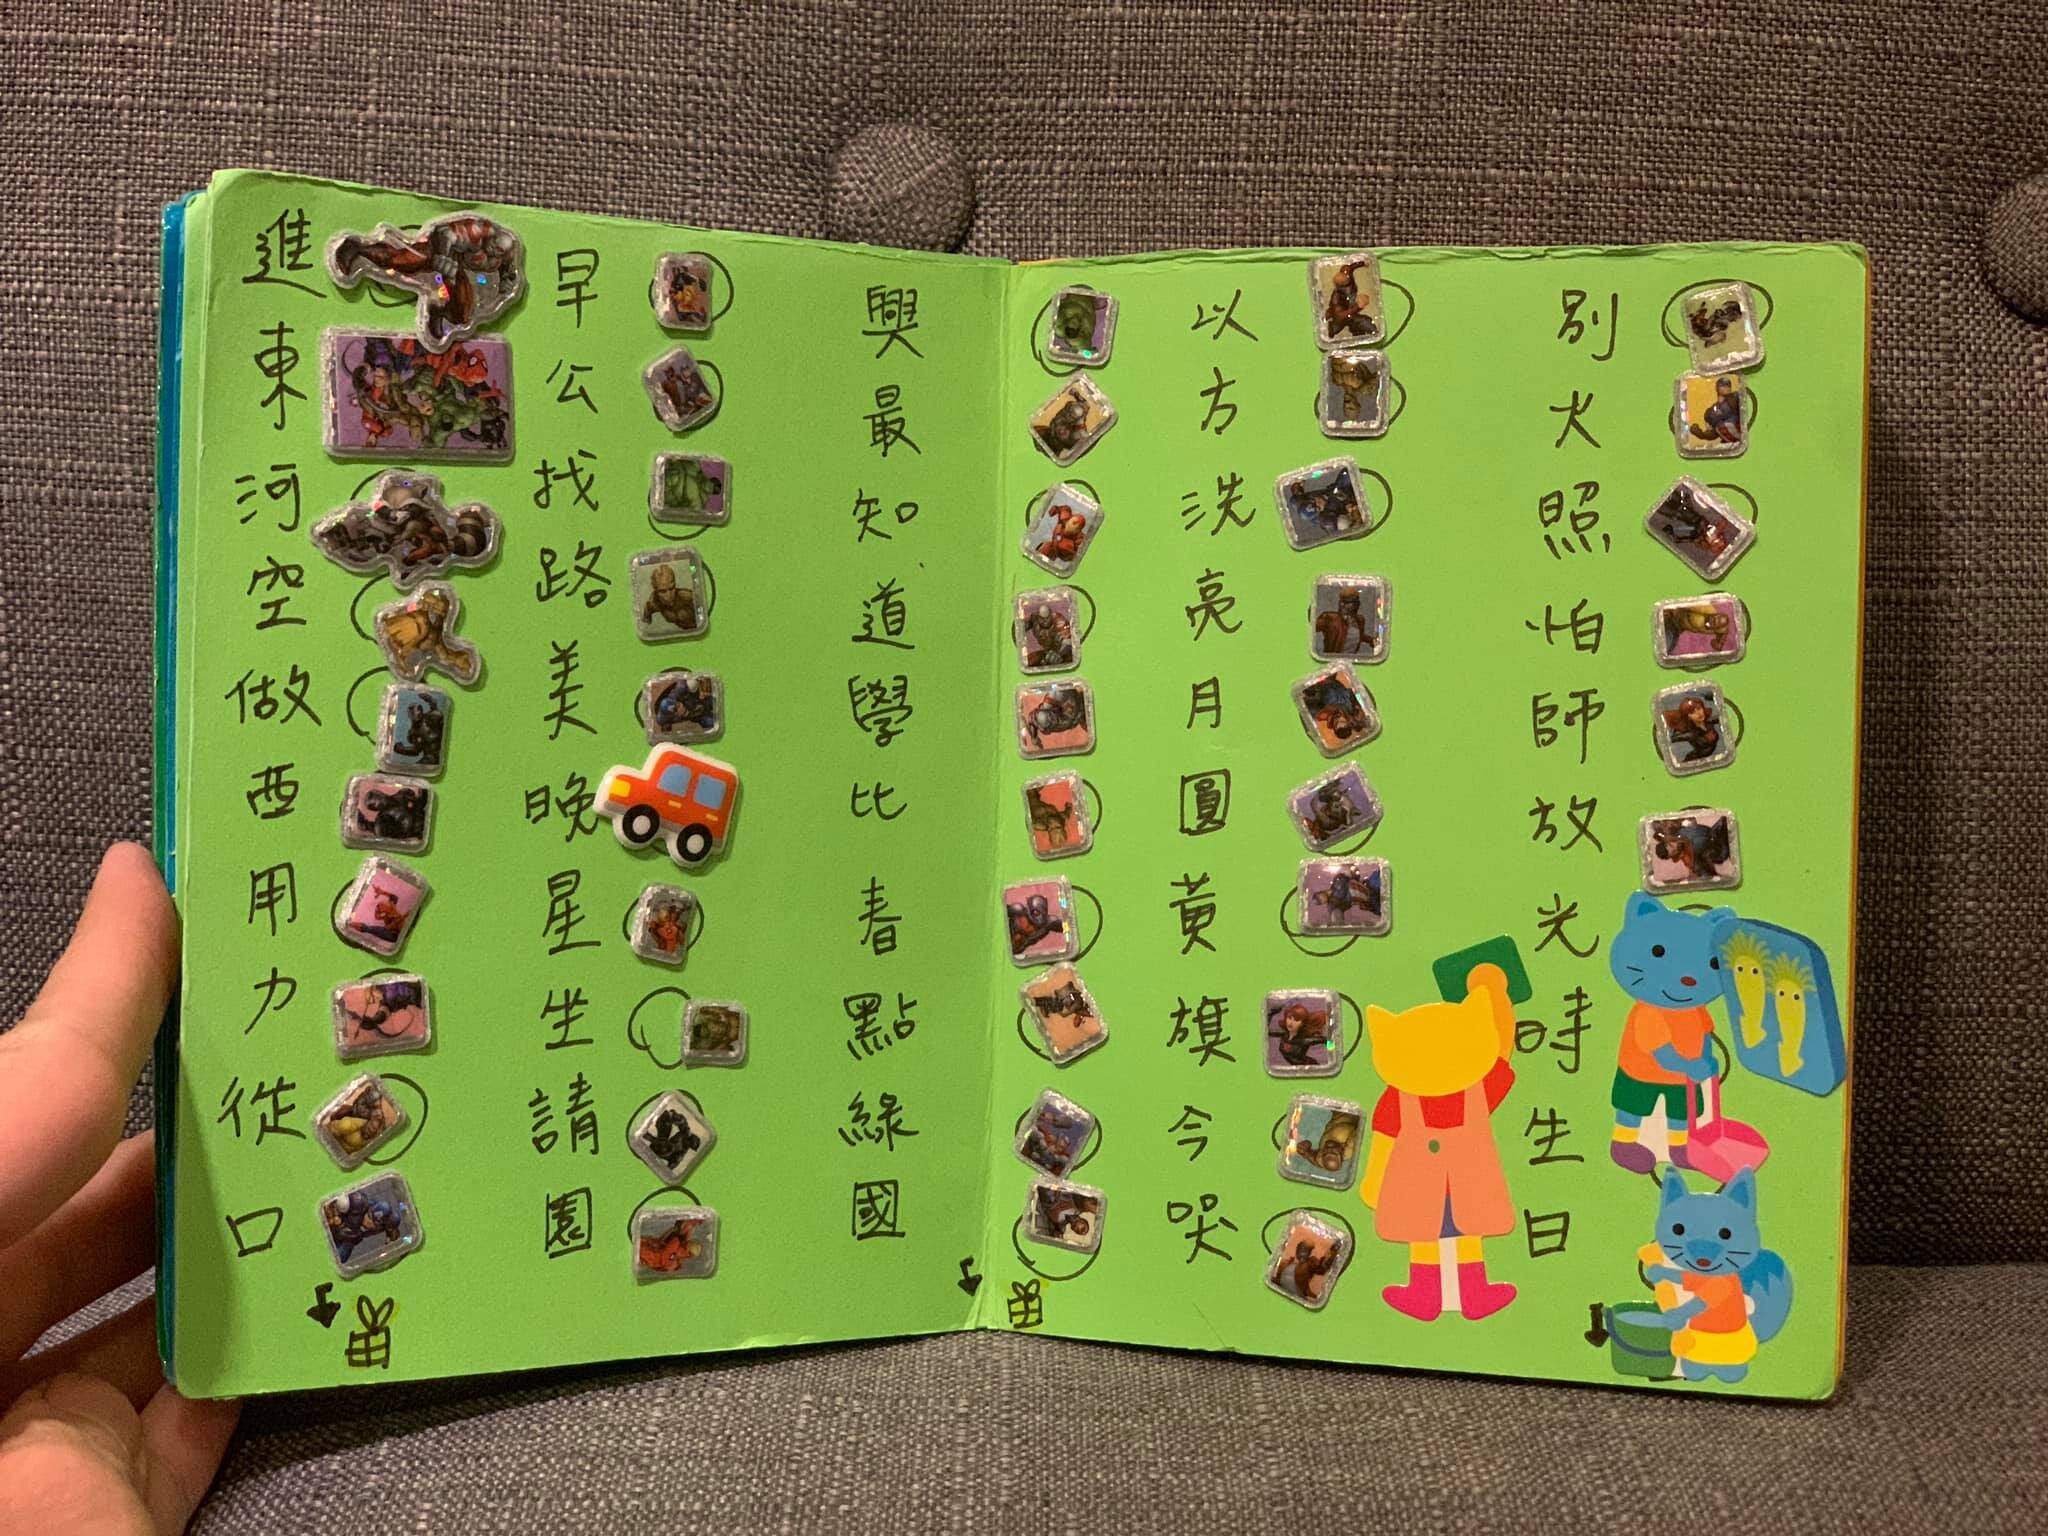 進東河空做西用力從口
早公找路美晚星坐請園
興最知道學比春點綠國
以方洗亮月圓黃旗今哭
別火照怕師放光時生日